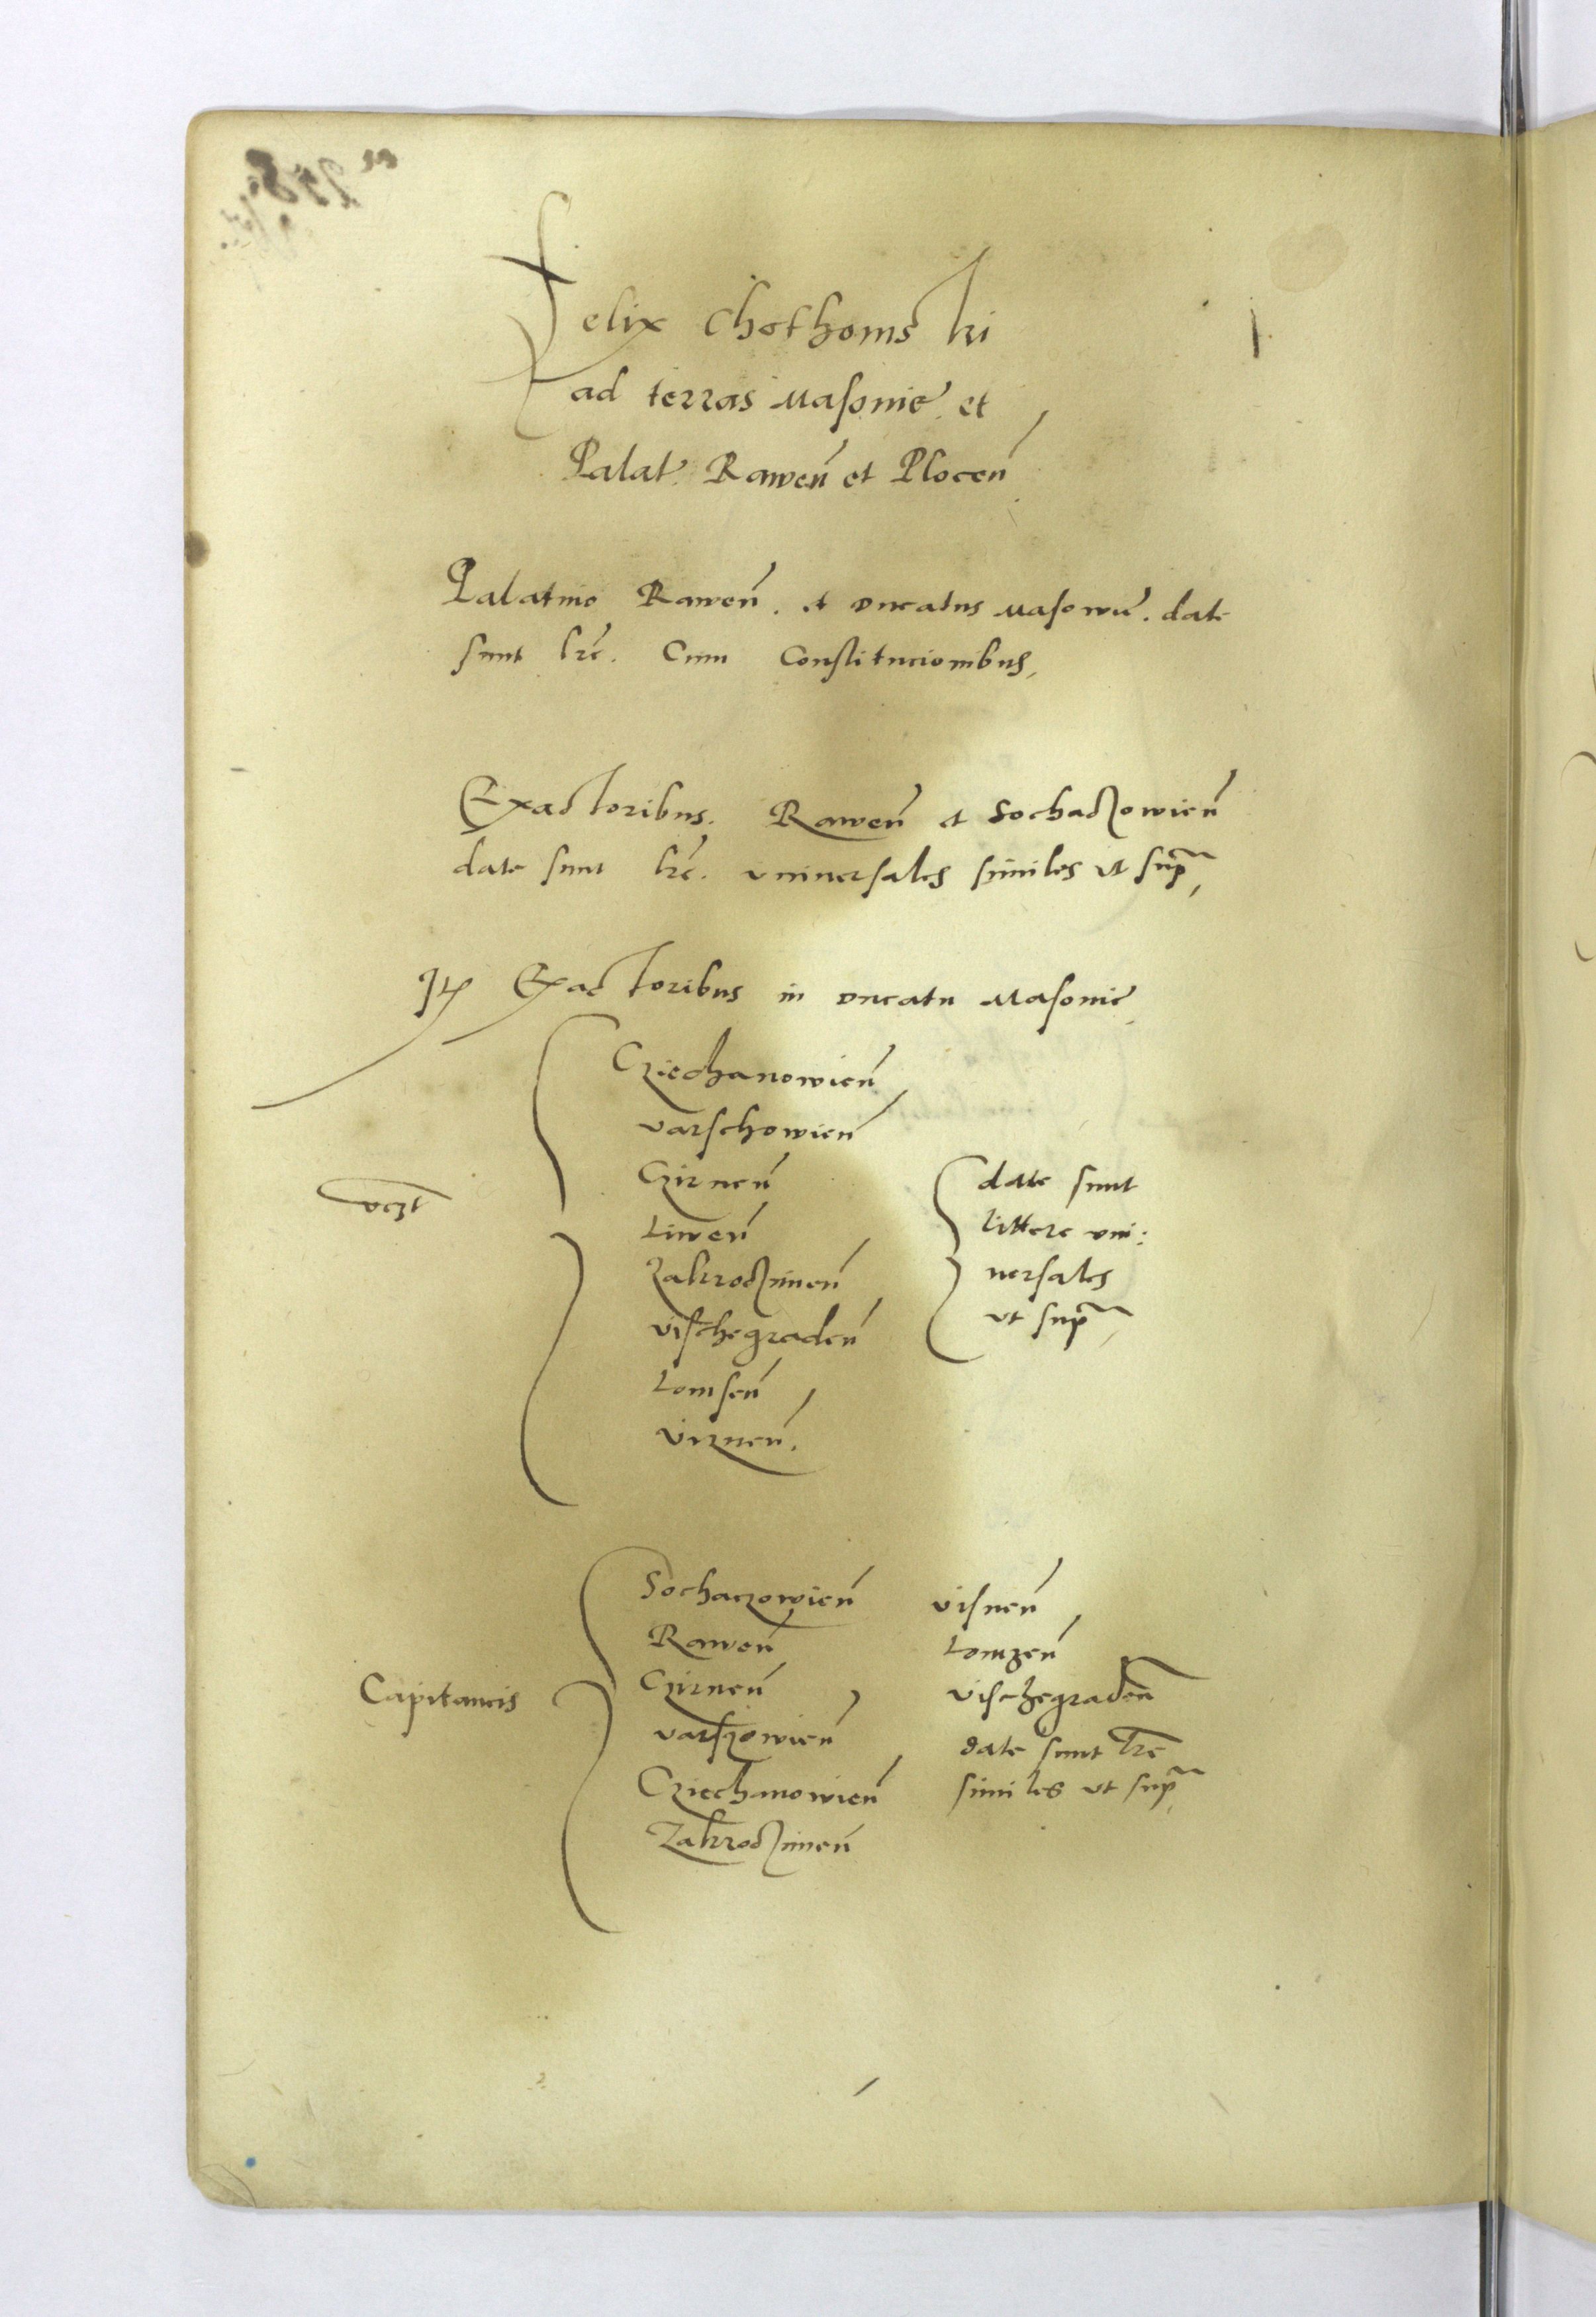 Felix Chothomski
ad terras Masovie et
Palat. Raweñ et Ploceñ
Palatino Raweñ. et Ducatus Masowie. date
sunt lr̃e. Cum Constitucionibus,
Exactoribus. Raweñ et Sochaczowieñ
date sunt lr̃e. universales similes ut supra,
Itẽ Exactoribus in Ducatu Masovie
Cziechanowieñ
Varschowieñ
Czirneñ
vczt
Liweñ
Zakroczimeñ
Vischegradeñ
Lomseñ
Vizneñ.
date sunt
littere uni:
versales
ut supr̃a,
Capitaneis
Sochaczowieñ
Raweñ
Czirneñ
Varszowieñ
Cziechanowieñ
Zakroczimeñ
Visneñ
Lomzeñ
Vischegradeñ
date sunt lr̃e
similes ut supr̃a,